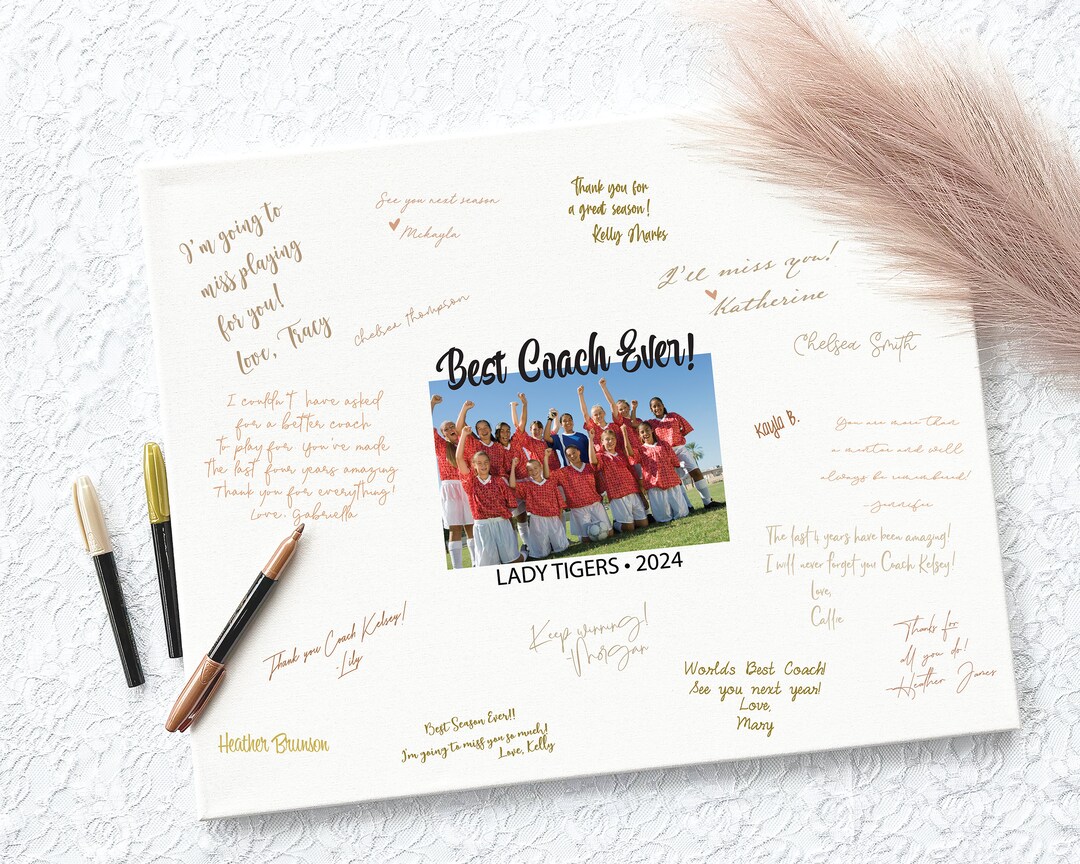 I'm going to
miss playing
for you!
Love, Tracy
See you next season
Mckayla
Thank you for
a great season!
Kelly Marks
I'll miss you!
Katherine
chelsea thompson
Chelsea Smith
Best Coach Ever!
LADY TIGERS • 2024
I couldn't have asked
for a better coach
to play for. You've made
the last four years amazing
Thank you for everything!
Love, Gabriella
Kayla B.
You are more than
a mentor and will
always be remembered!
-Jennifer
The last 4 years have been amazing!
I will never forget you Coach Kelsey!
Love,
Callie
Thank you Coach Kelsey!
-Lily
Keep winning!
-Morgan
Thanks for
all you do!
-Heather James
Worlds Best Coach!
See you next year!
Love,
Mary
Heather Brunson
Best Season Ever!!
I'm going to miss you so much!
Love, Kelly